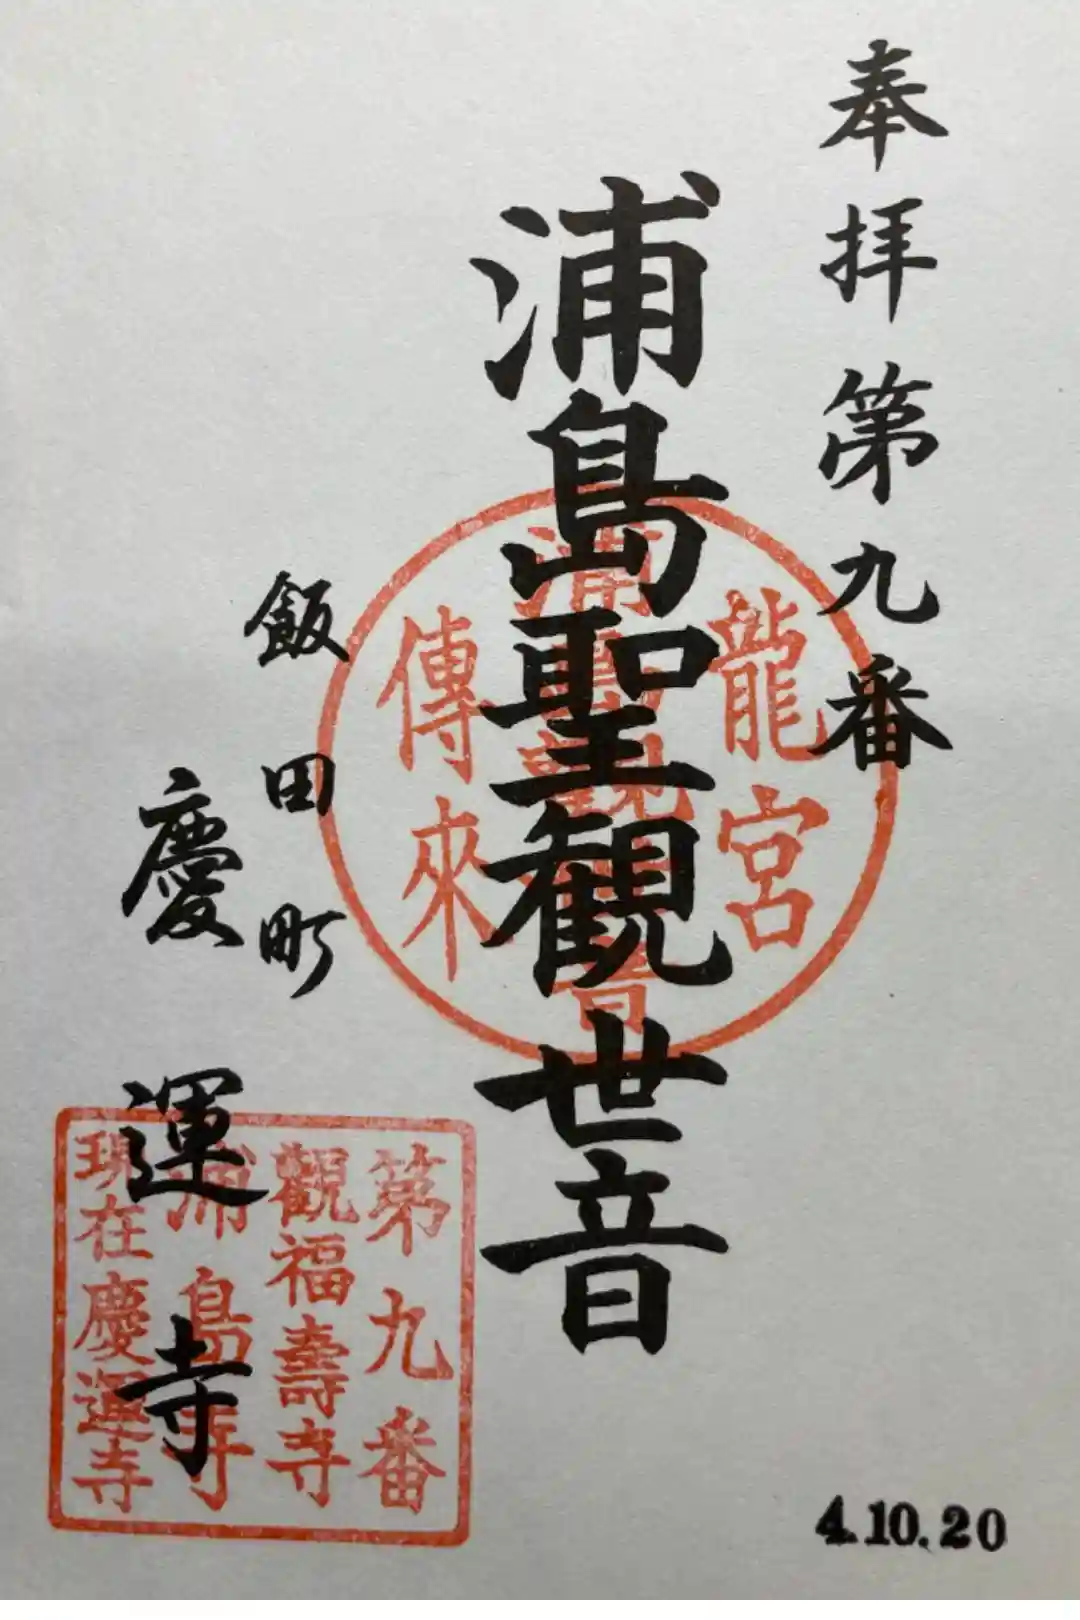 奉拝第九番
浦島聖観世音
飯田町
慶運寺
龍宮
浦島觀音
傳來
第九番
觀福壽寺
浦島寺
現在慶運寺
4.10.20